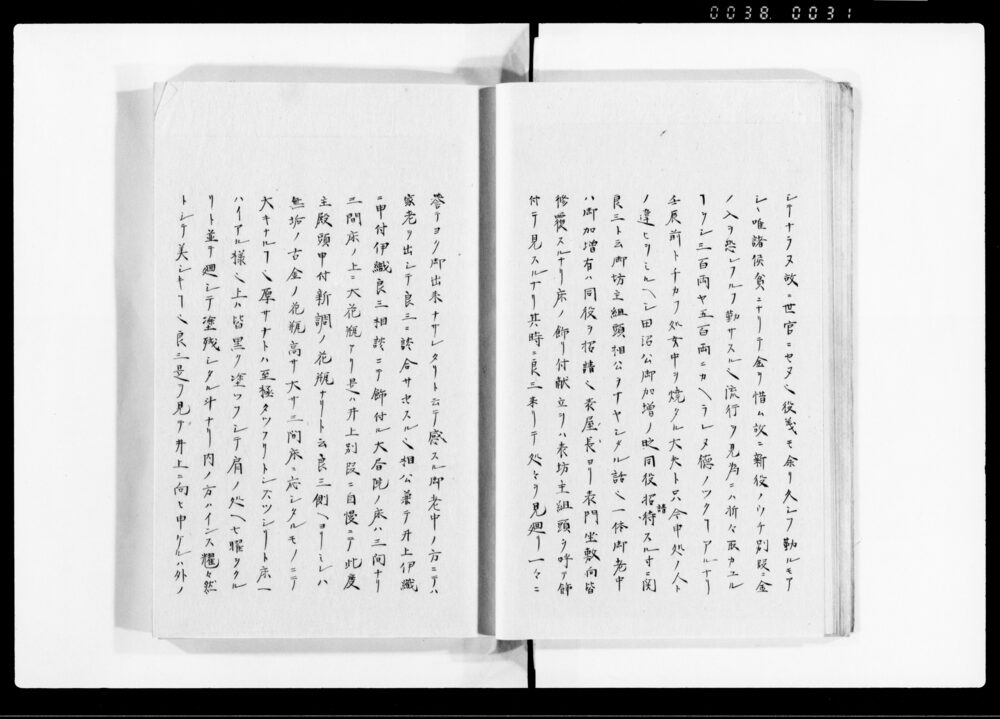 0038 0031
シテナラヌ故ニ世官ニセヌ〻役義モ余リ久シフ勤ルモア
シヽ唯諸侯貧ニナリテ金ヲ惜ム故ニ新役ノウチ別段ニ金
ノ入ヲ恐シフル勤サスル〻流行ヲ見為ニハ折々取カユル
フクシ三百両ヤ五百両ニカヘラレヌ徳ノツクアルナリ
壬辰前トチカフ処女中ヲ焼タル大夫ト只今申処ノ人ト
ノ違ヒヲミルヘシ田沼公御加増ノ時同役招請スル寸ニ関
良三ト云御坊主組頭相公ヲナヤシタル話〻一体御老中
ハ御加増有ハ同役ヲ招請〻表屋長ヨリ表門坐敷向皆
修覆スルナリ床ノ飾リ付献立ヲハ表坊主組頭ヲ呼テ飾
付テ見スルナリ其時ニ良三来リテ処々ヲ見廻リ一々ニ
誉テヨク御出来ナサレタリト云テ感スル御老中ノ方ニテハ
家老ヲ出シテ良三ニ談合サセスル〻相公兼テ井上伊織
ニ申付伊織良三相談ニテ飾付ル大書院ノ床ハ三間ナリ
三間床ノ上ニ大花瓶アリ是ハ井上別段ニ自慢ニテ此度
主殿頭申付新調ノ花瓶ナリト云良三側ヘヨリミレハ
無垢ノ古金ノ花瓶高サ大サ三間床ニ応シタルモノニテ
大キナル〻厚サナトハ至極タツフリトシズツシリト床一
ハイアル様〻上ハ皆黒ク塗ツフシテ肩ノ処ヘセ腥タクル
リト並テ廻シテ塗残シタル斗ナリ内ノ方ハインス耀々然
トシテ美シキ〻良三是ヲ見テ井上ニ向ヒ申ケルハ外ノ